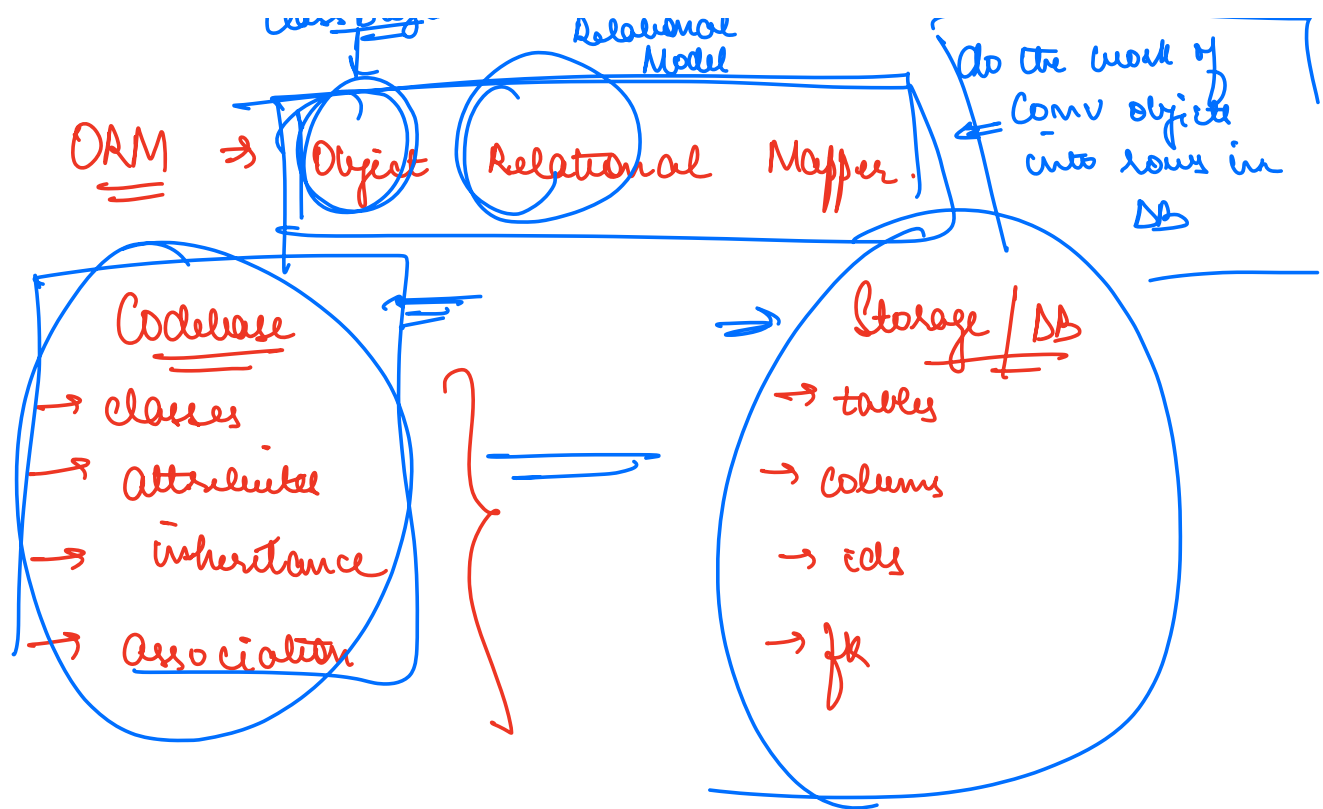 Relational
Model
do the work of
conv objects
into rows in
DB
ORM → Object Relational Mapper.
Codebase
→ classes
→ attributes
→ inheritance
→ association
Storage / DB
→ tables
→ colums
→ ids
→ fk